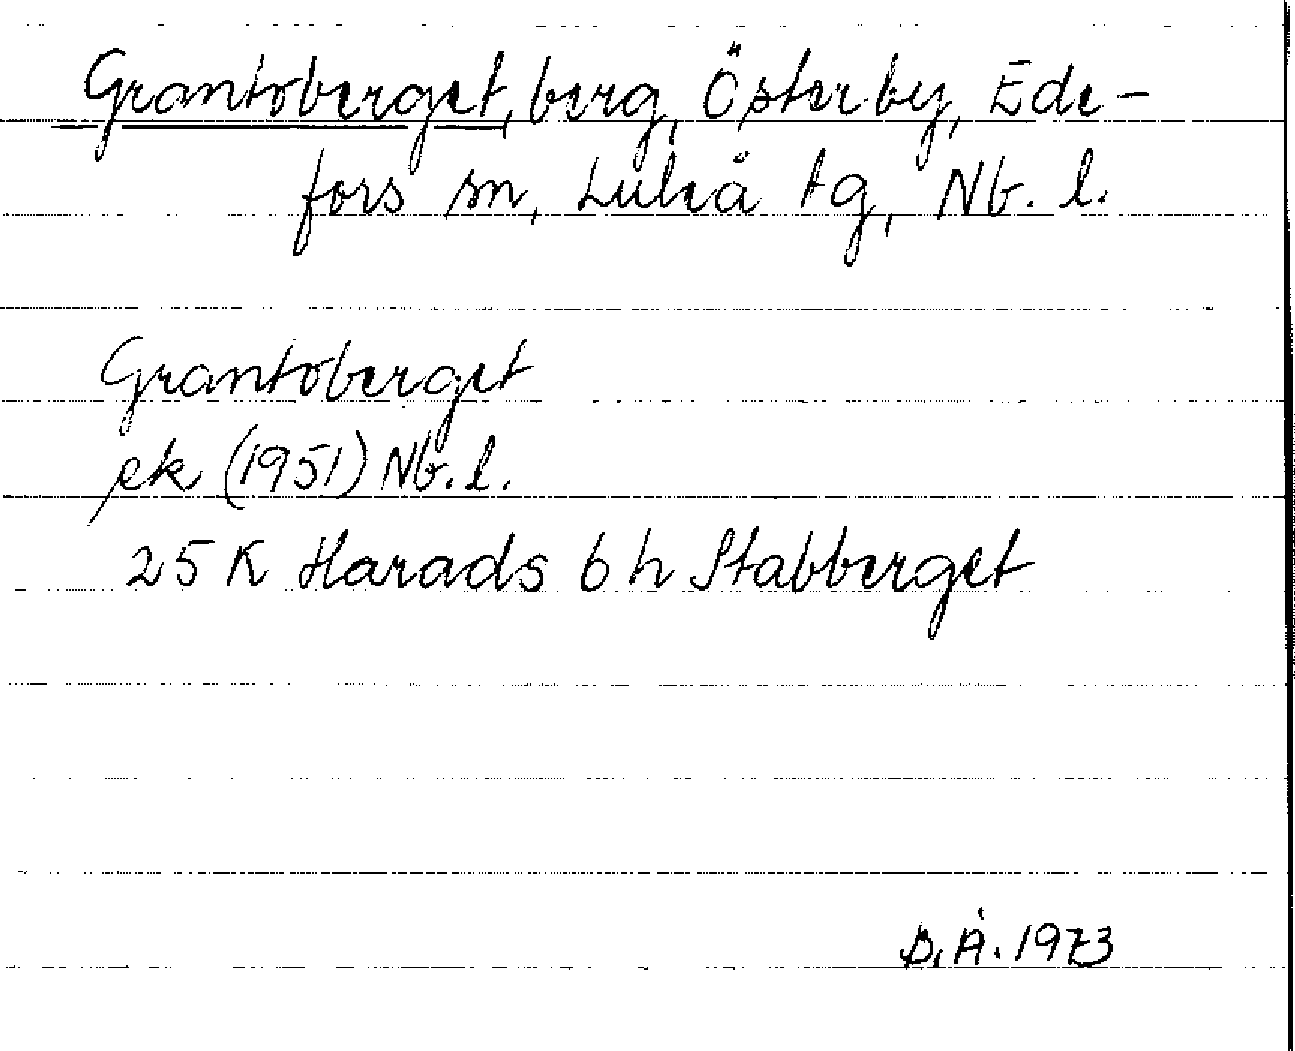 Grantoberget, berg, Österby, Ede-
fors sn, Luleå tg, Nb. l.
Grantoberget
ek (1951) Nb. l.
25 K Harads 6 h Stabberget
B. Å. 1973